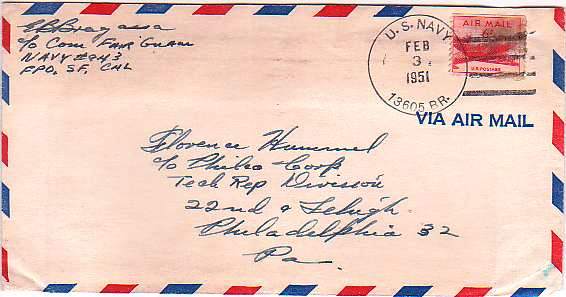 C B Bragassa
c/o Com Fair Guam
NAVY #943
FPO, SF, CAL
U.S. NAVY
FEB
3
1951
13605 BR.
AIR MAIL
6¢
U.S. POSTAGE
VIA AIR MAIL
Florence Hummel
c/o Philco Corp
Tech Rep Division
22nd & Lehigh
Philadelphia 32
Pa.